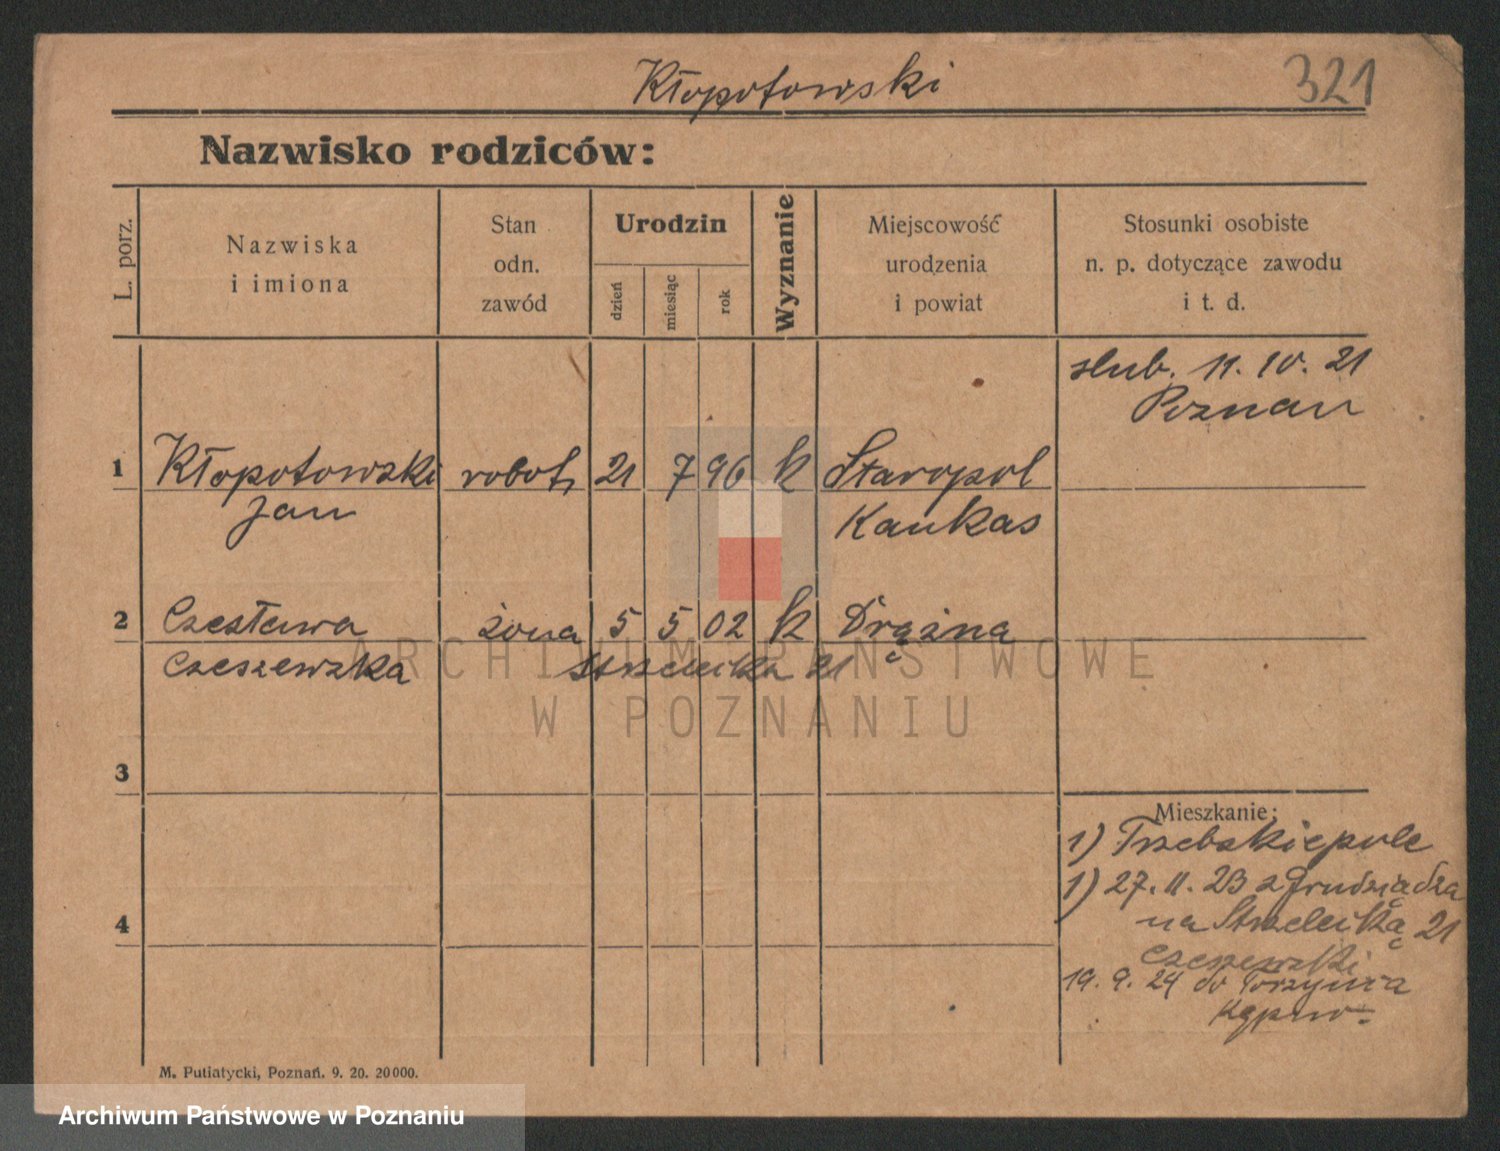 Kłopotowski
321
Nazwisko rodziców:
L. porz.
Nazwiska
i imiona
Stan
odn.
zawód
Urodzin
dzień
miesiąc
rok
Wyznanie
Miejscowość
urodzenia
i powiat
Stosunki osobiste
n. p. dotyczące zawodu
i t. d.
slub. 11. IV. 21
Poznan
1 Kłopotowski robot. 21 7 96 k Staropol
Jan Kaukas
2 Czesława żona 5 5 02 k Drążna
Czeszewska Strzelecka 21
ARCHIWUM PAŃSTWOWE
W POZNANIU
3
Mieszkanie:
1) Trzebskiepole
1) 27. 11. 23 z Grudziądza
na Strzelecką 21
Czeszewski
4
19. 9. 24 do
M. Putiatycki, Poznań. 9. 20. 20000.
Archiwum Państwowe w Poznaniu